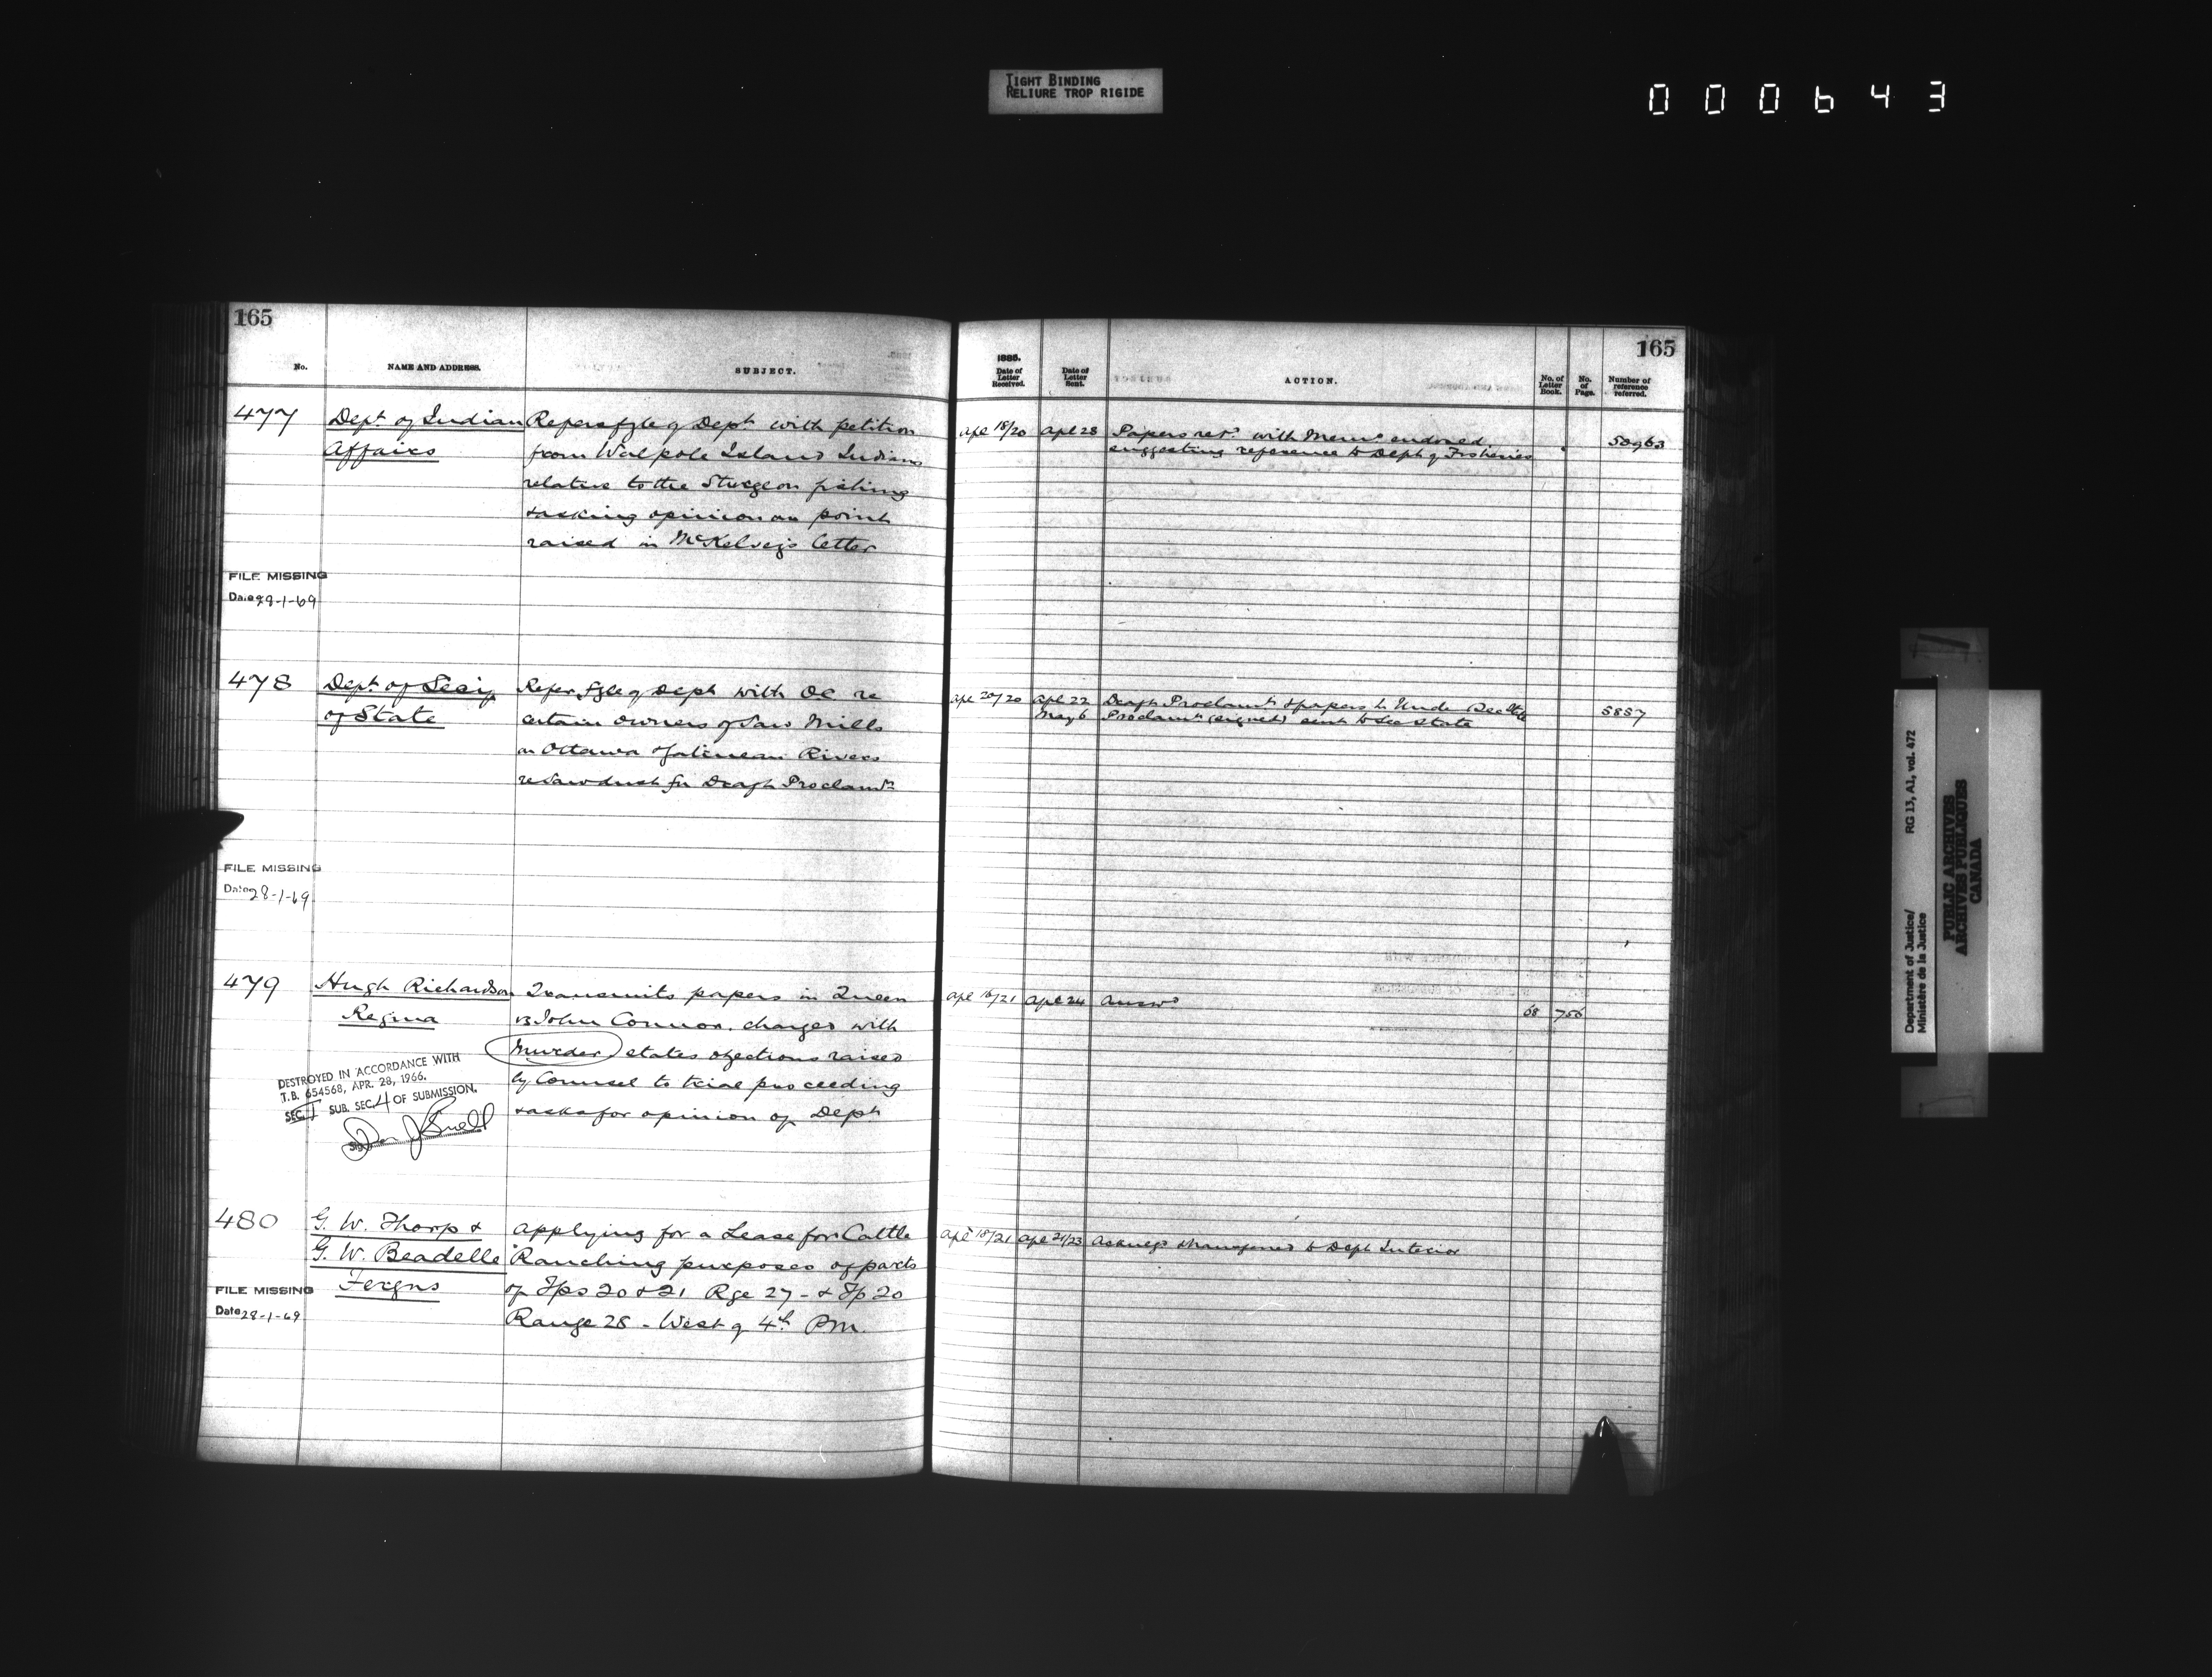 TIGHT BINDING
RELIURE TROP RIGIDE
000643
165
No.
NAME AND ADDRESS.
SUBJECT.
477
Dept. of Indian
Affairs
Refers fyle of Dept. with petition
from Walpole Island Indians
relative to the Sturgeon fishing
& asking opinion on point
raised in McKelvey's letter
FILE MISSING
Date 28-1-69
478
Dept. of Secy
of State
Refers fyle of Dept with OC re
certain owners of Saw Mills
on Ottawa & Gatineau Rivers
re Sawdust for Draft Proclamn
FILE MISSING
Date 28-1-69
479
Hugh Richardson
Regina
Transmits papers in Queen
vs John Connor. charged with
Murder states objections raised
by Counsel to trial proceeding
& asks for opinion of Dept
DESTROYED IN ACCORDANCE WITH
T.B. 654568, APR. 28, 1966.
SEC. I SUB. SEC. 4 OF SUBMISSION.
480
G. W. Thorp &
G. W. Beadelle
Fergus
Applying for a Lease for Cattle
Ranching purposes of parts
of Tps 20 & 21 Rge 27 - & Tp 20
Range 28 - West of 4th PM.
FILE MISSING
Date 28-1-69
165
1886.
Date of
Letter
Received.
Date of
Letter
Sent.
ACTION.
No. of
Letter
Book.
No.
of
Page.
Number of
reference
referred.
Apl 18/20 Apl 28 Papers retd. with Memo endorsed
suggesting reference to Dept of Fisheries
58963
Apl 20/20 Apl 22 Draft Proclamn & papers to Under Sec State
May 6 Proclamn (signed) sent to Sec State
5857
Apl 16/21 Apl 24 Answd
68 756
Apl 18/21 Apl 21/23 Acknegd & transferred to Dept Interior
Department of Justice/
Ministère de la Justice
RG 13, A1, vol. 472
PUBLIC ARCHIVES
ARCHIVES PUBLIQUES
CANADA